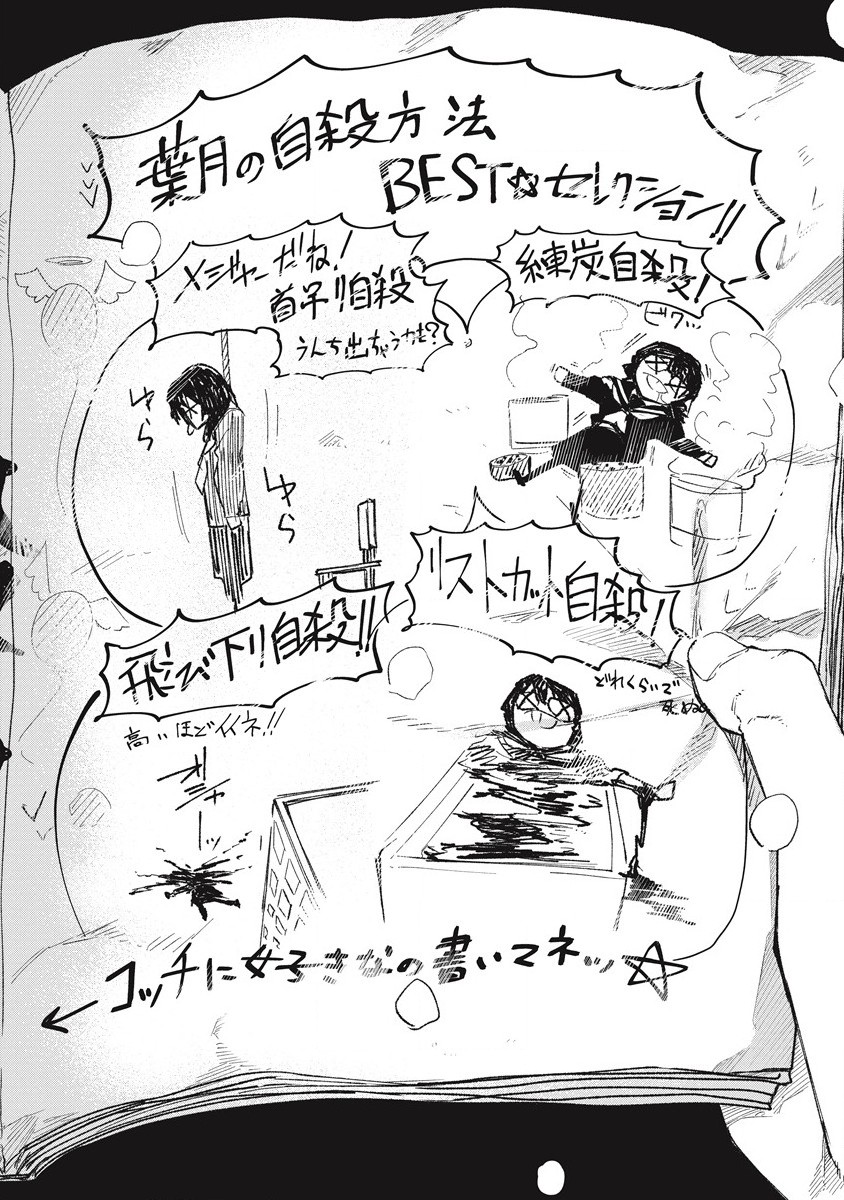 葉月の自殺方法
BEST☆セレクション!!
メジャーだね!
首守り自殺
うんち出ちゃうかも?
ゆら
ゆら
練炭自殺!
ビクッ…
飛び下り自殺!!
高いほどイイネ!!
グシャーッ
リストカット自殺!
どれくらいで
死ぬの
←コッチに好きなの書いてネッ☆